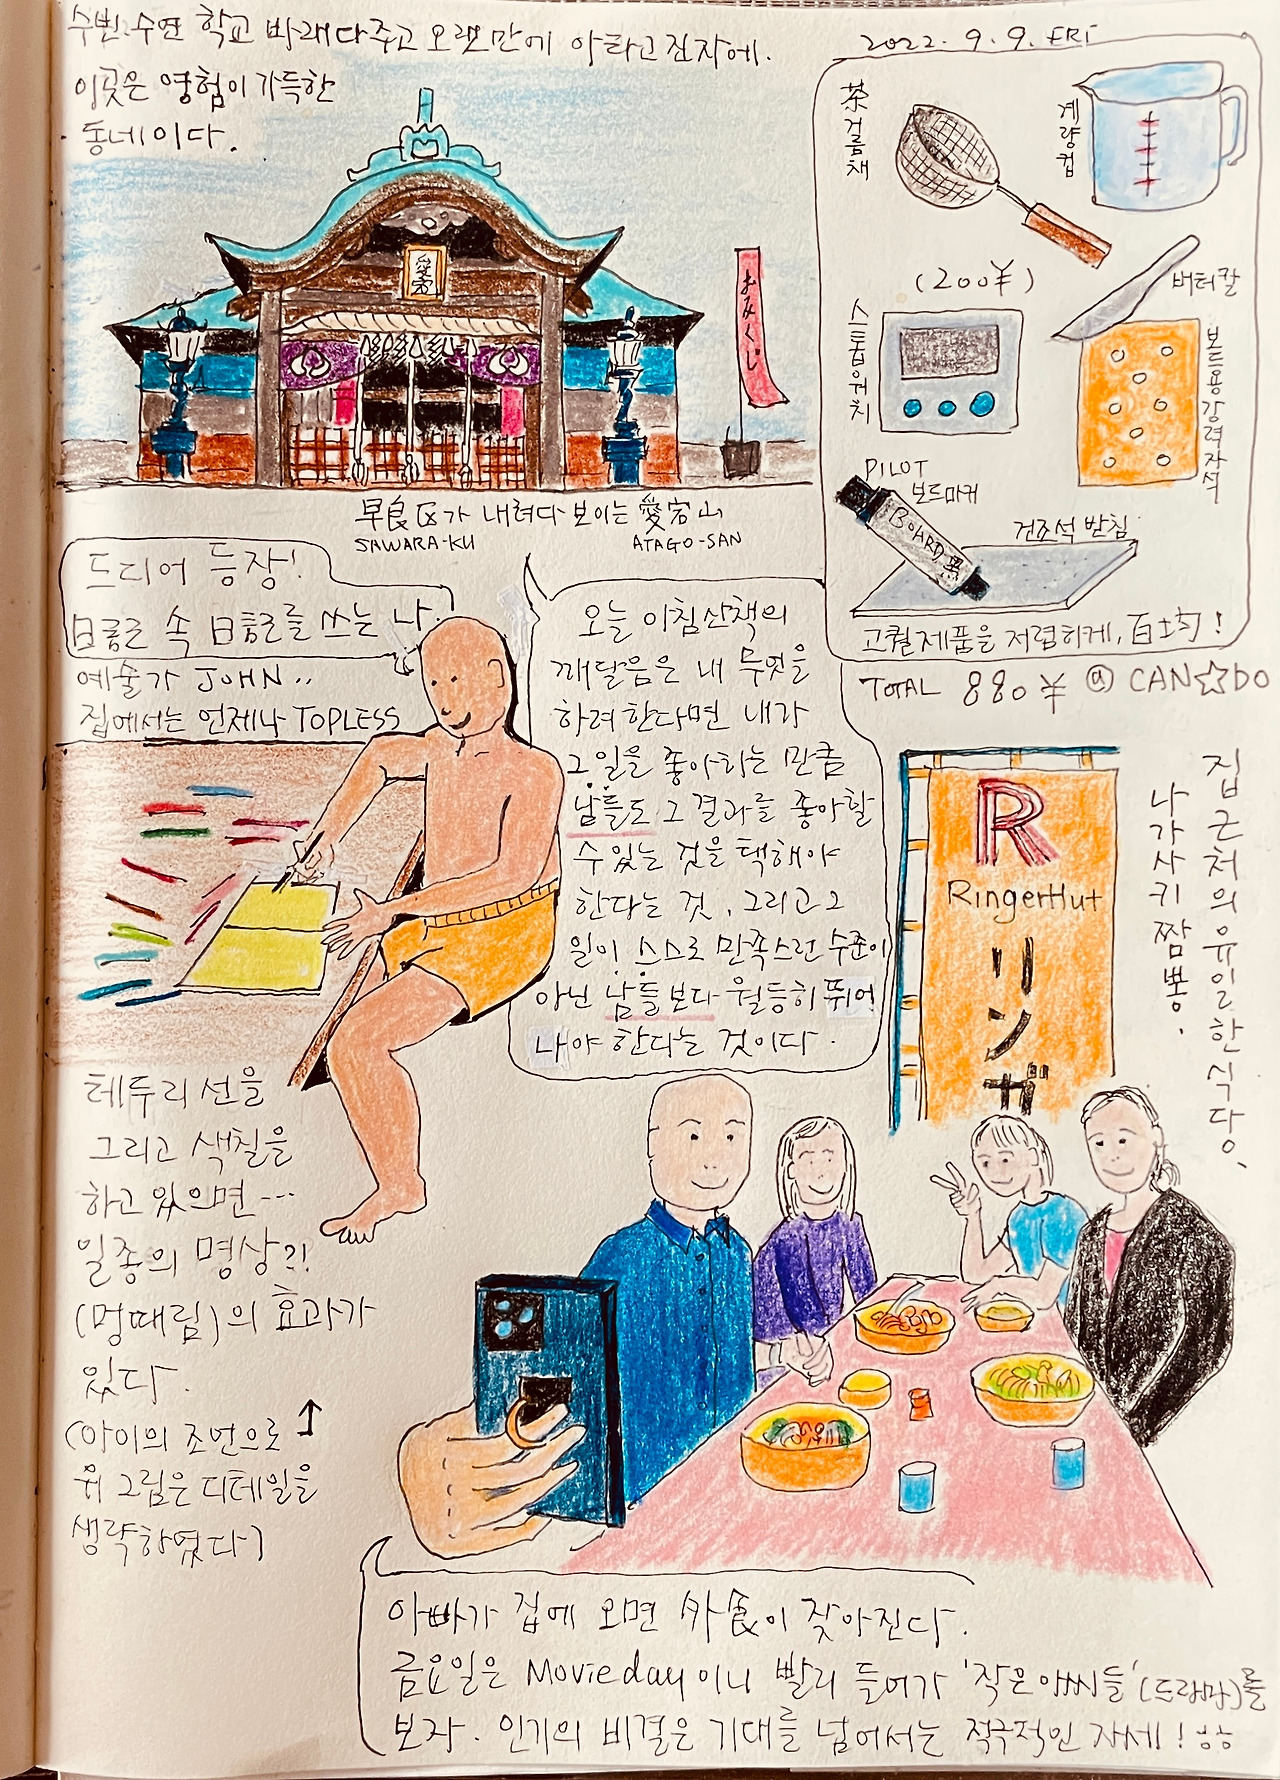 수빈.수연 학교 바래다주고 오랜만에 아타고진자에.
이곳은 영험이 가득한
동네이다.
2022. 9. 9. FRI
愛宕
おみくじ
早良区가 내려다 보이는 愛宕山
SAWARA-KU ATAGO-SAN
茶 거름채
계량컵
(200¥)
스톱워치
버터칼
보드용 강력자석
PILOT
보드마커
BOARD 黒
건조석 받침
고퀄제품을 저렴하게, 百均!
TOTAL 880¥ @ CAN☆DO
드디어 등장!
日記 속 日記를 쓰는 나.
예술가 JOHN..
집에서는 언제나 TOPLESS
오늘 아침산책의
깨달음은 내 무엇을
하려 한다면 내가
그 일을 좋아하는 만큼
남들도 그 결과를 좋아할
수 있는 것을 택해야
한다는 것, 그리고 그
일이 스스로 만족스런 수준이
아닌 남들보다 월등히 뛰어
나야 한다는 것이다.
R
RingerHut
リンガ
집 근처의 유일한 식당,
나가사키 짬뽕.
테두리 선을
그리고 색칠을
하고 있으면...
일종의 명상?!
(멍때림)의 효과가
있다.
(아이의 조언으로
위 그림은 디테일을
생략하였다)
아빠가 집에 오면 外食이 잦아진다.
금요일은 Movie day이니 빨리 들어가 '작은아씨들'(드라마)를
보자. 인기의 비결은 기대를 넘어서는 적극적인 자세! ㅎㅎ